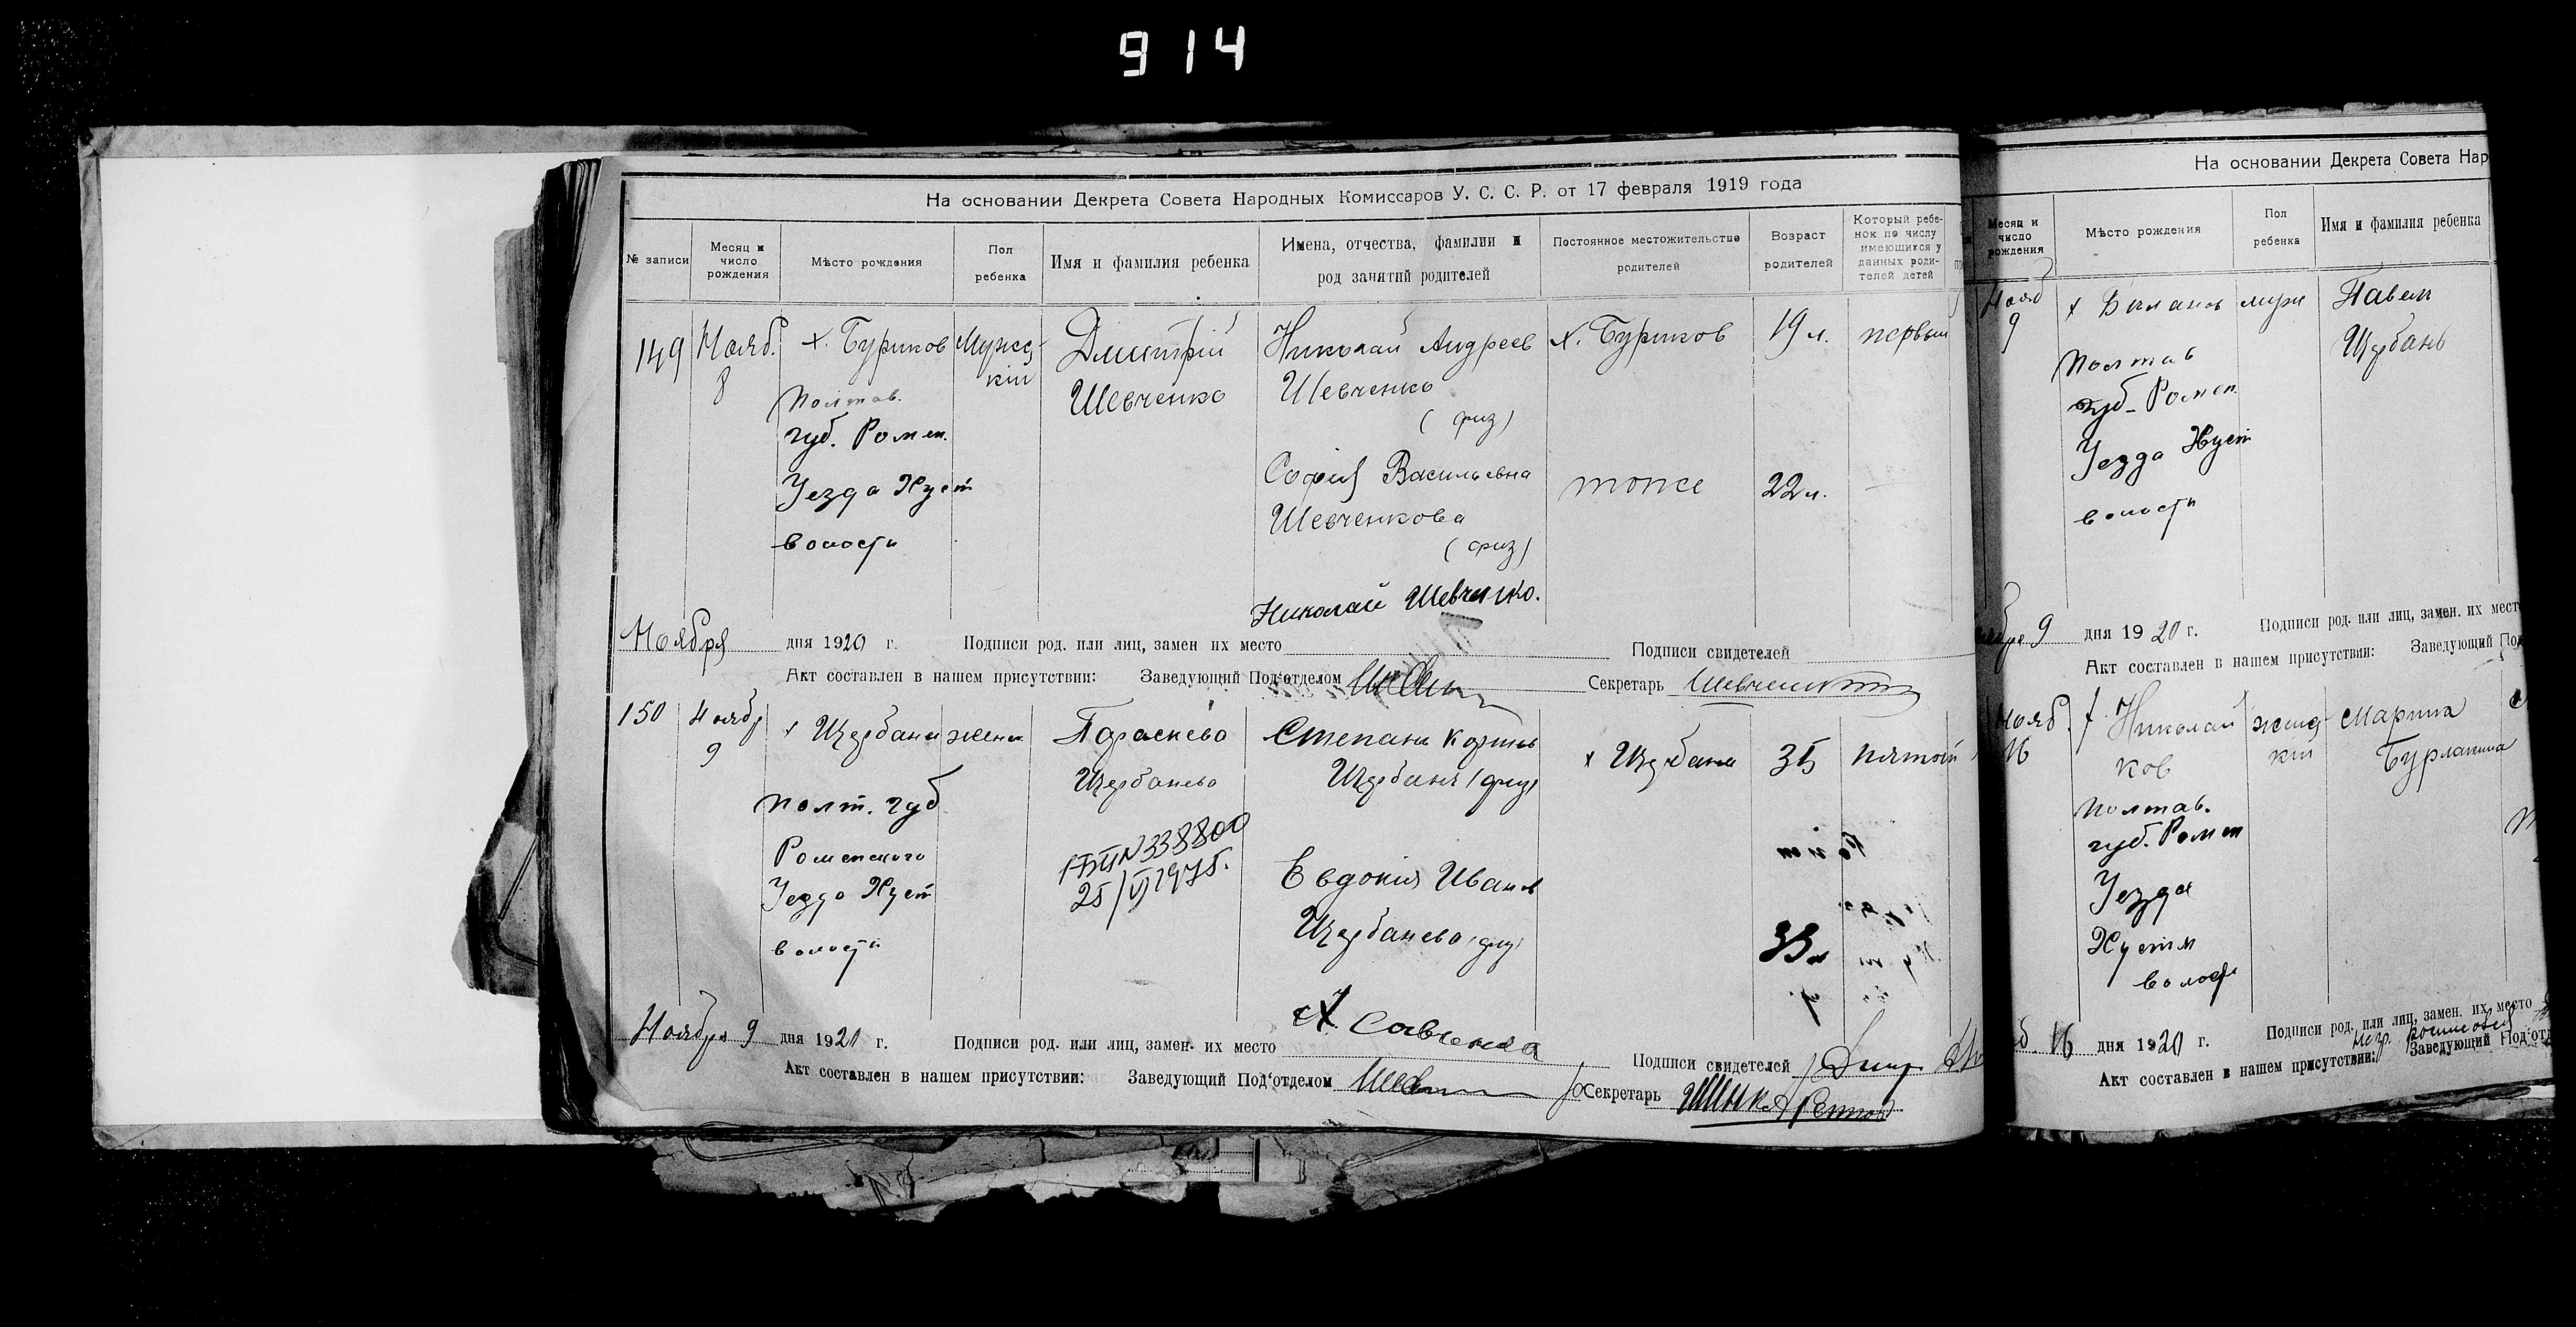 914
На основании Декрета Совета Народных Комиссаров У. С. С. Р. от 17 февраля 1919 года
№ записи
Месяц и число рождения
Мѣсто рождения
Пол ребенка
Имя и фамилия ребенка
Имена, отчества, фамилии и род занятий родителей
Постоянное местожительство родителей
Возраст родителей
Который ребенок по числу имеющихся у данных родителей детей
149 Нояб. 8
х. Буриков
Полтав.
губ. Ромен.
Уезда Хуст
волости
Мужескій
Дмитрій
Шевченко
Николай Андреев
Шевченко
(физ)
Софія Васильевна
Шевченкова
(физ)
х. Буриков
тоже
19 л.
22 л.
первый
Николай Шевченко.
Ноября дня 1920 г. Подписи род. или лиц, замен их место Подписи свидетелей
Акт составлен в нашем присутствии: Заведующий Под'отделом Секретарь
150 Ноябр 9
х Щербани
полт. губ
Роменского
Уезда Хуст
волости
женс
Параскева
Щербанева
N 338800
25/VI 1975.
Степан
Щербань (физ)
Евдокия Иванов
Щербанева (физ)
х Щербани
35
33 л
пятый
Савченко
Ноября 9 дня 1920 г. Подписи род. или лиц, замен. их место Подписи свидетелей
Акт составлен в нашем присутствии: Заведующий Под'отделом Секретарь
На основании Декрета Совета Нар
Месяц и число рождения
Мѣсто рождения
Пол ребенка
Имя и фамилия ребенка
Нояб 9
х Биланов
Полтав
губ. Ромен
Уезда Хуст
волости
муж
Павел
Щербань
9 дня 1920 г. Подписи род. или лиц, замен. их мест
Акт составлен в нашем присутствии: Заведующий Под
Нояб. 16
х. Николай
ков
Полтав.
губ. Ромен
Уезда
Хустм
волос
женс
кій
Марина
16 дня 1920 г. Подписи род. или лиц, замен. их место
Акт составлен в нашем присутствии: Заведующий Под'отд